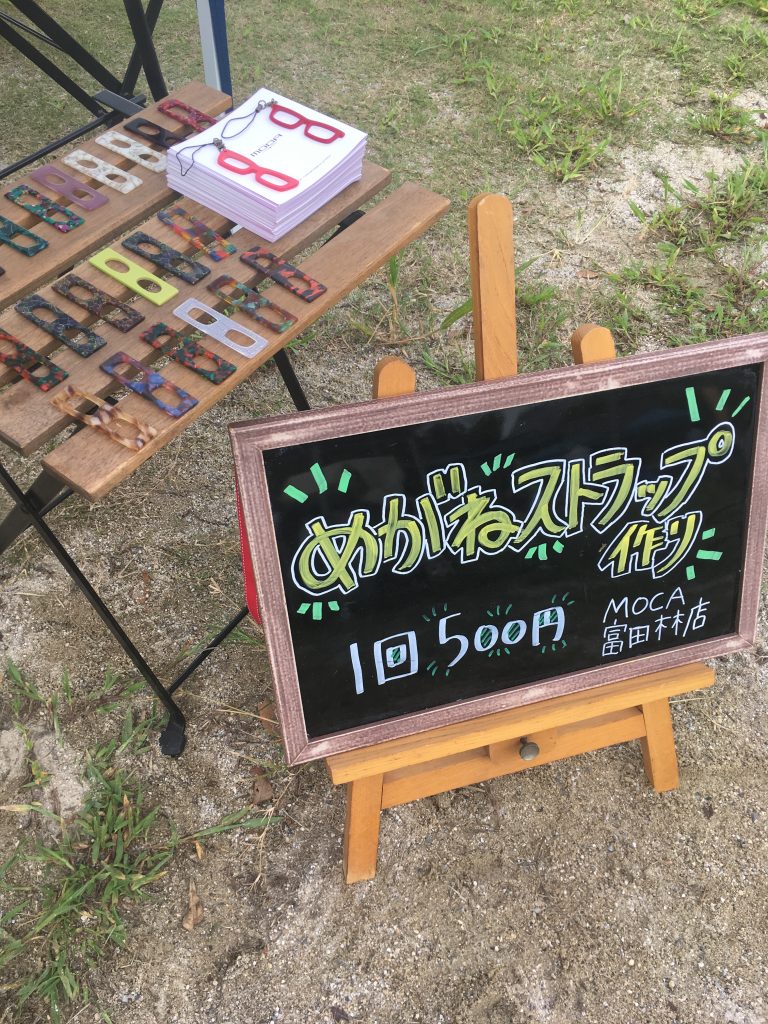 moca
めがねストラップ
作り
1回500円
MOCA
富田林店